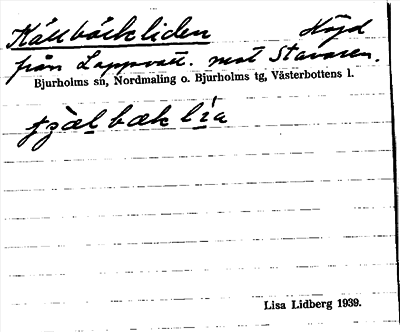 Källbäckliden Höjd
från Lappvatt. mot Stavaren.
Bjurholms sn, Nordmaling o. Bjurholms tg, Västerbottens l.
Lisa Lidberg 1939.